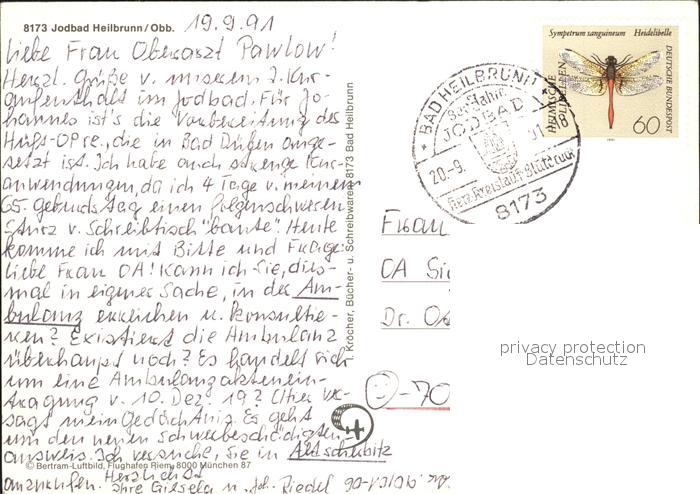 8173 Jodbad Heilbrunn/Obb.
19.9.91
Liebe Frau Oberarzt Pawlow!
Herzl. Grüße v. unserem 2. Kur-
aufenthalt im Jodbad. Für Jo-
hannes ist's die Vorbereitung des
Hüft-OP re., die in Bad Düben ange-
setzt ist. Ich habe auch strenge Kur-
anwendungen, da ich 4 Tage v. meinem
65. Geburtstag einen folgenschweren
Sturz v. Schreibtisch "baute". Heute
komme ich mit Bitte und Frage:
Liebe Frau OA! Kann ich Sie, dies-
mal in eigener Sache, in der Am-
bulanz erreichen u. konsultie-
ren? Existiert die Ambulanz
überhaupt noch? Es handelt sich
um eine Ambulanzaktenein-
tragung v. 10. Dez. 19? (Hier ver-
sagt mein Gedächtnis. Es geht
um den neuen Schwerbeschädigten-
ausweis. Ich versuche, Sie in Altscherbitz
anzurufen. Herzlichst
Ihre Gisela u. Joh. Riedel
© Bertram-Luftbild, Flughafen Riem, 8000 München 87
I. Kröcher, Bücher- u. Schreibwaren, 8173 Bad Heilbrunn
BAD HEILBRUNN
JODBAD
20-9. 91-18
Herz, Kreislauf, Blutdruck
8173
Sympetrum sanguineum Heidelibelle
HEIMISCHE LIBELLEN
DEUTSCHE BUNDESPOST
60
Frau
OA
Dr.
-70
privacy protection
Datenschutz